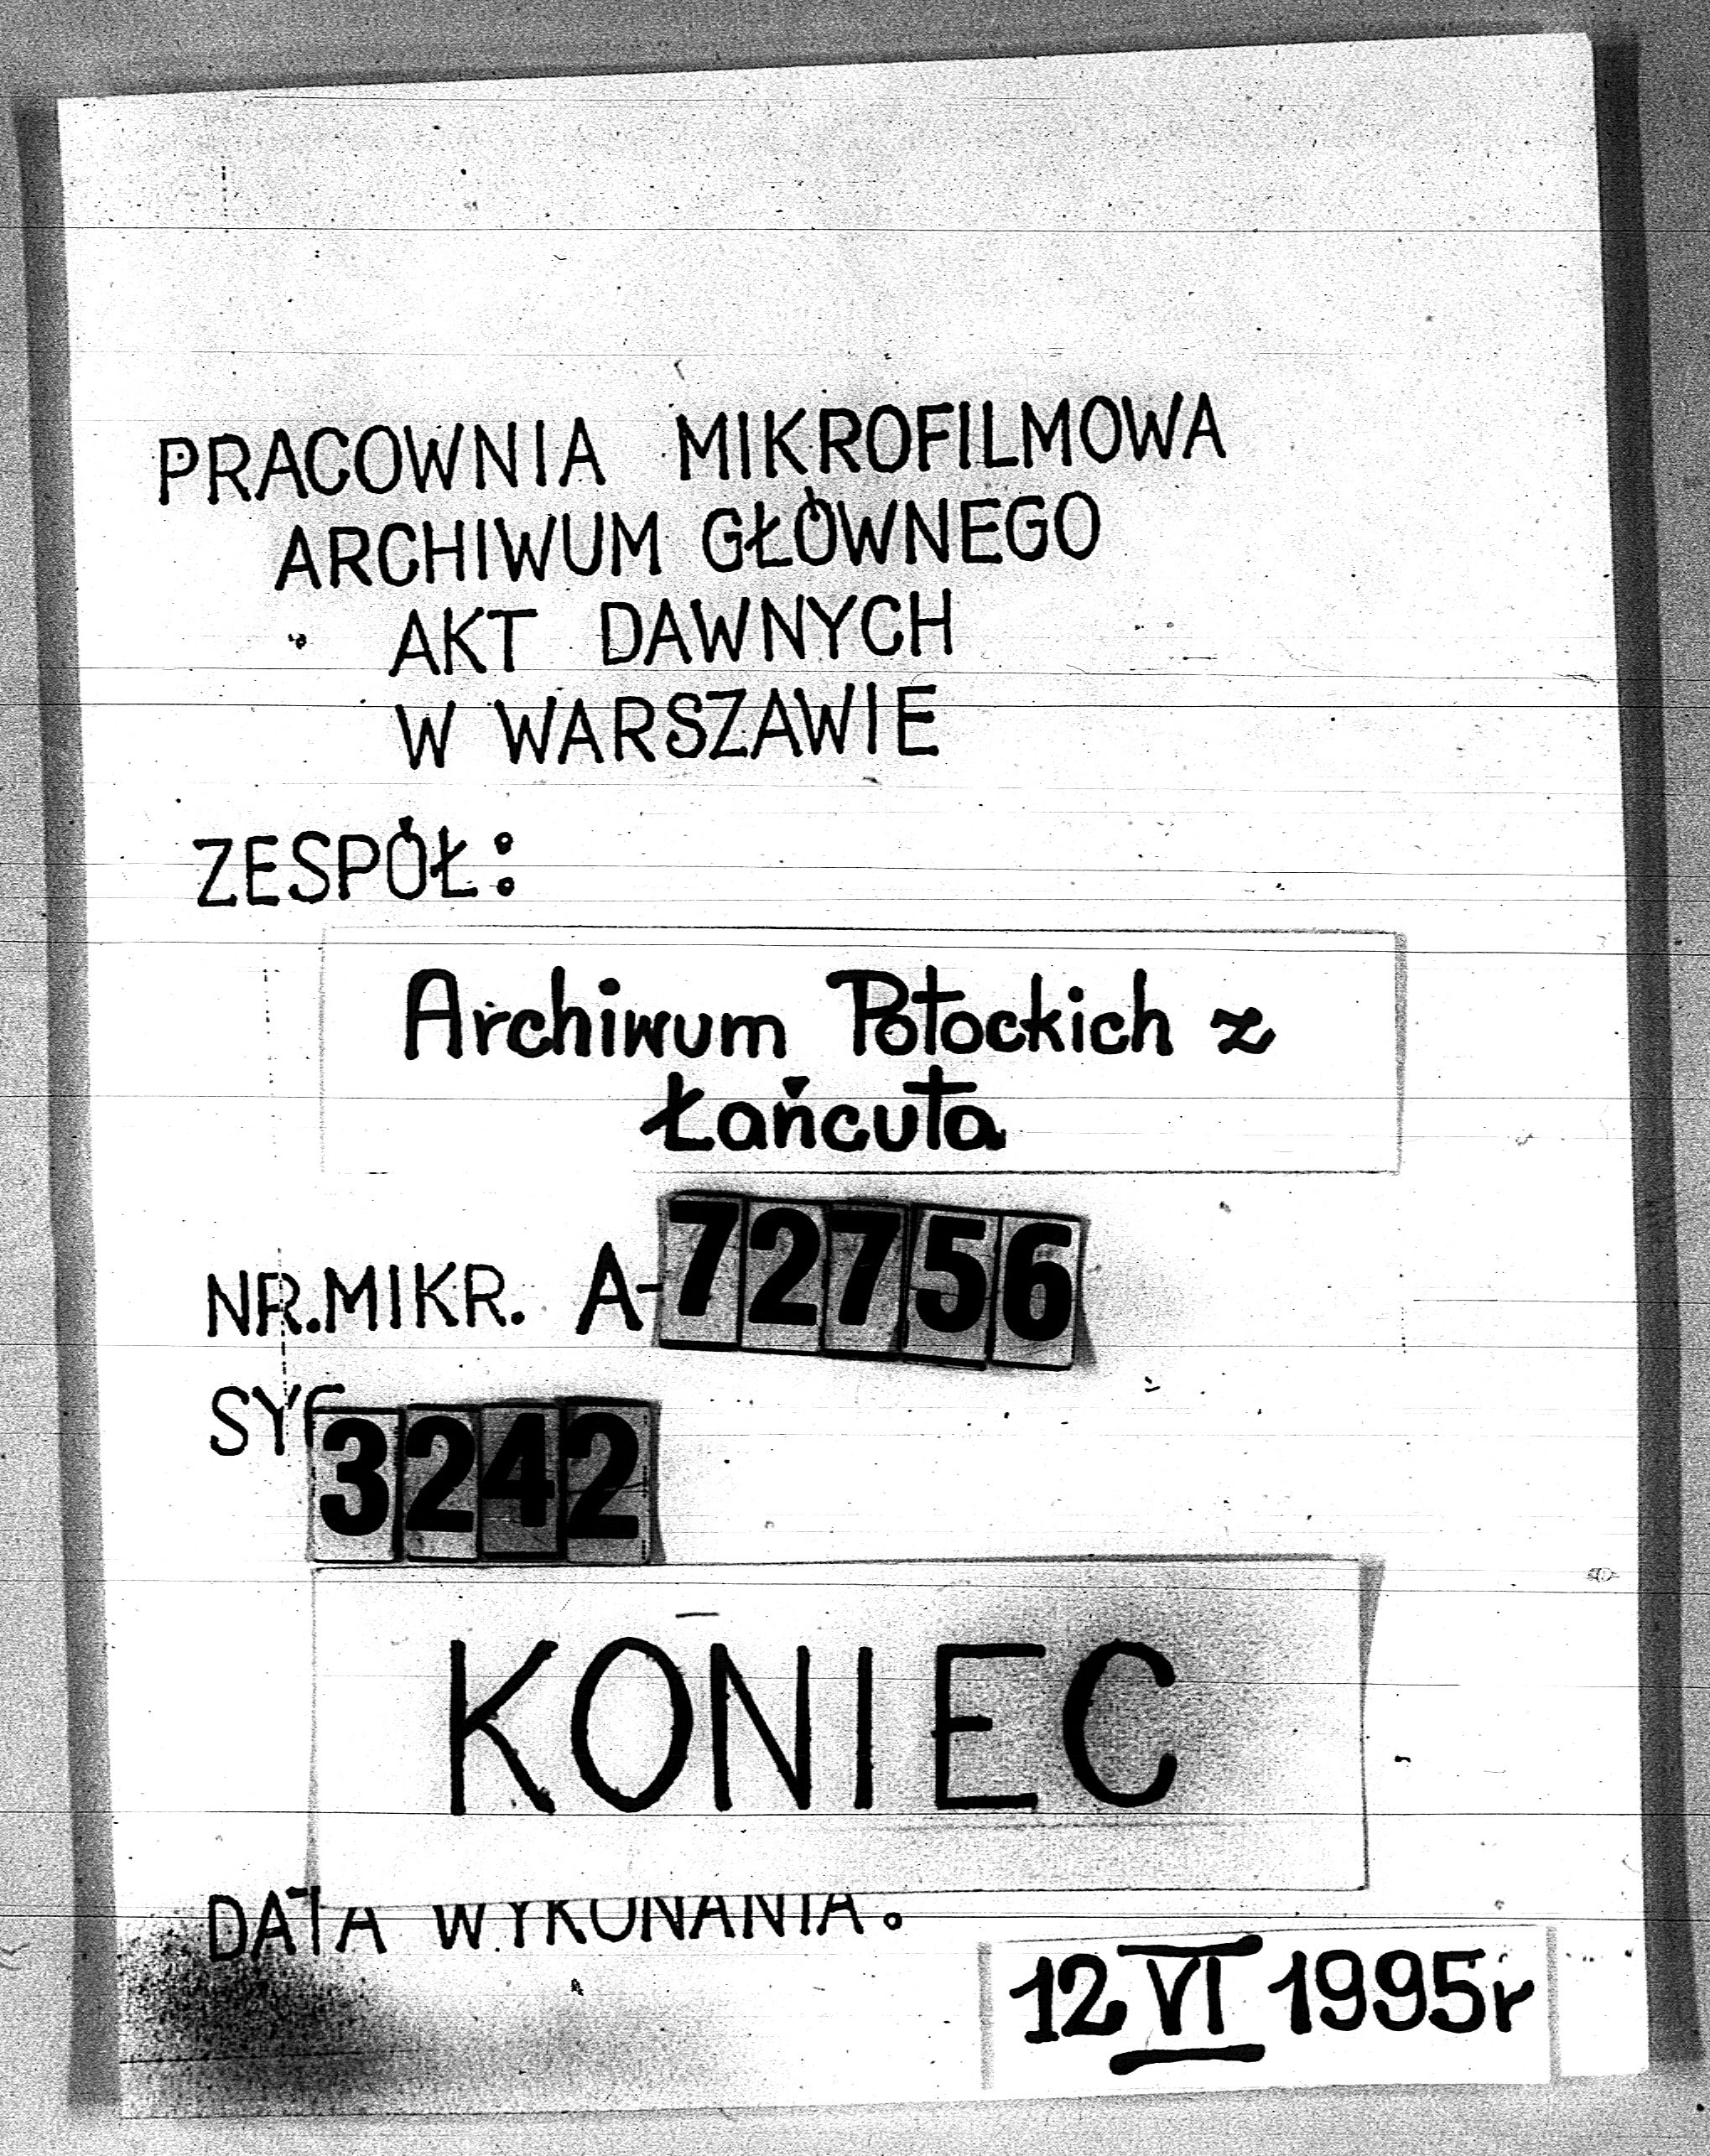 PRACOWNIA MIKROFILMOWA
ARCHIWUM GŁÓWNEGO
AKT DAWNYCH
W WARSZAWIE
ZESPÓŁ:
Archiwum Potockich z
Łańcuta
NR.MIKR. A-72756
SYG
3242
KONIEC
DATA WYKONANIA:
12 VI 1995r